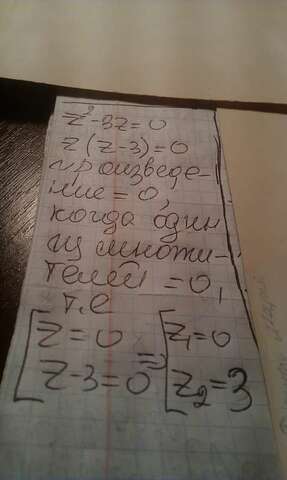 z²-3z=0
z(z-3)=0
произведе-
ние=0,
когда один
из множи-
телей=0,
т.е
[z=0 => [z₁=0
z-3=0 z₂=3